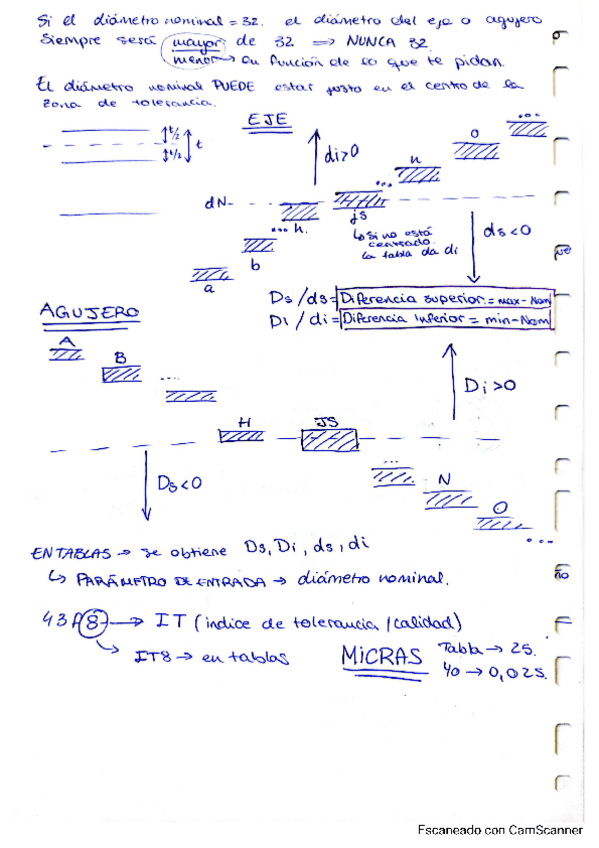 Si el diámetro nominal = 32. el diámetro del eje o agujero
siempre será mayor de 32 => NUNCA 32
menor -> en función de lo que te pidan.
El diámetro nominal PUEDE estar justo en el centro de la
zona de tolerancia.
EJE
t/2
t/2
t
di>0
n
o
...
dN-
... h.
...
js
↳ si no está
centrado
la tabla da di
ds<0
b
a
Ds/ds = Diferencia superior = max - Nom
Di / di = Diferencia inferior = min - Nom
AGUJERO
A
B
....
Di>0
H
JS
Ds<0
...
N
O
...
EN TABLAS -> se obtiene Ds, Di, ds, di
↳ PARÁMETRO DE ENTRADA -> diámetro nominal.
8 -> IT (índice de tolerancia / calidad)
↳ IT8 -> en tablas
MICRAS
Tabla -> 25.
Yo -> 0,025.
Escaneado con CamScanner